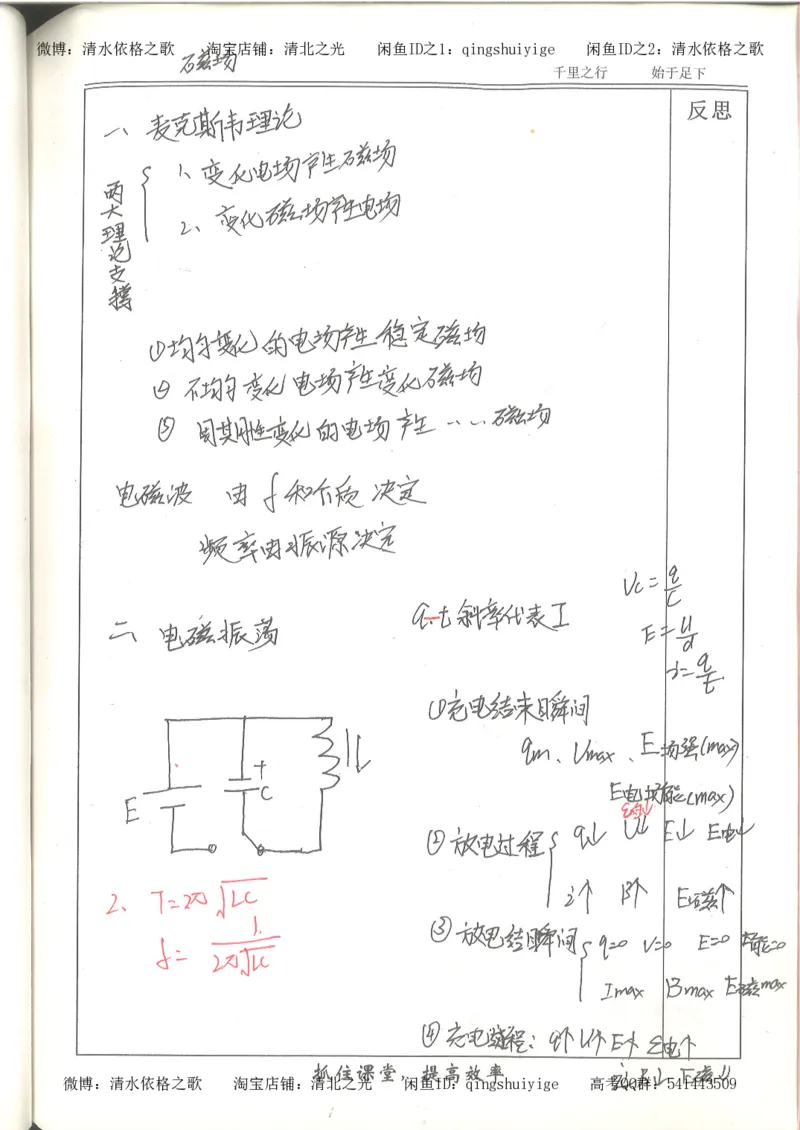 微博：清水依格之歌 淘宝店铺：清北之光 闲鱼ID之1：qingshuiyige 闲鱼ID之2：清水依格之歌
磁场
千里之行 始于足下
反思
一、麦克斯韦理论
两大理论支撑
1、变化电场产生磁场
2、变化磁场产生电场
①均匀变化的电场产生稳定磁场
② 不均匀变化电场产生变化磁场
③ 周期性变化的电场产生……磁场
电磁波 由f和介质决定
频率由振源决定
二、电磁振荡
q-t斜率代表I
Vc=q/C
E=U/d
i=q/t
①充电结束瞬间
qm、Umax、E场强(max)
E电场能(max)
E
C
L
②放电过程 q↓ U↓ E↓ E电↓
i↑ B↑ E磁↑
2、T=2π√LC
f=1/2π√LC
③放电结束瞬间 q=0 V=0 E=0
Imax Bmax E磁max
④充电过程：q↑ U↑ E↑ E电↑
抓住课堂，提高效率
微博：清水依格之歌 淘宝店铺：清北之光 闲鱼ID：qingshuiyige 高考QQ群：541443509